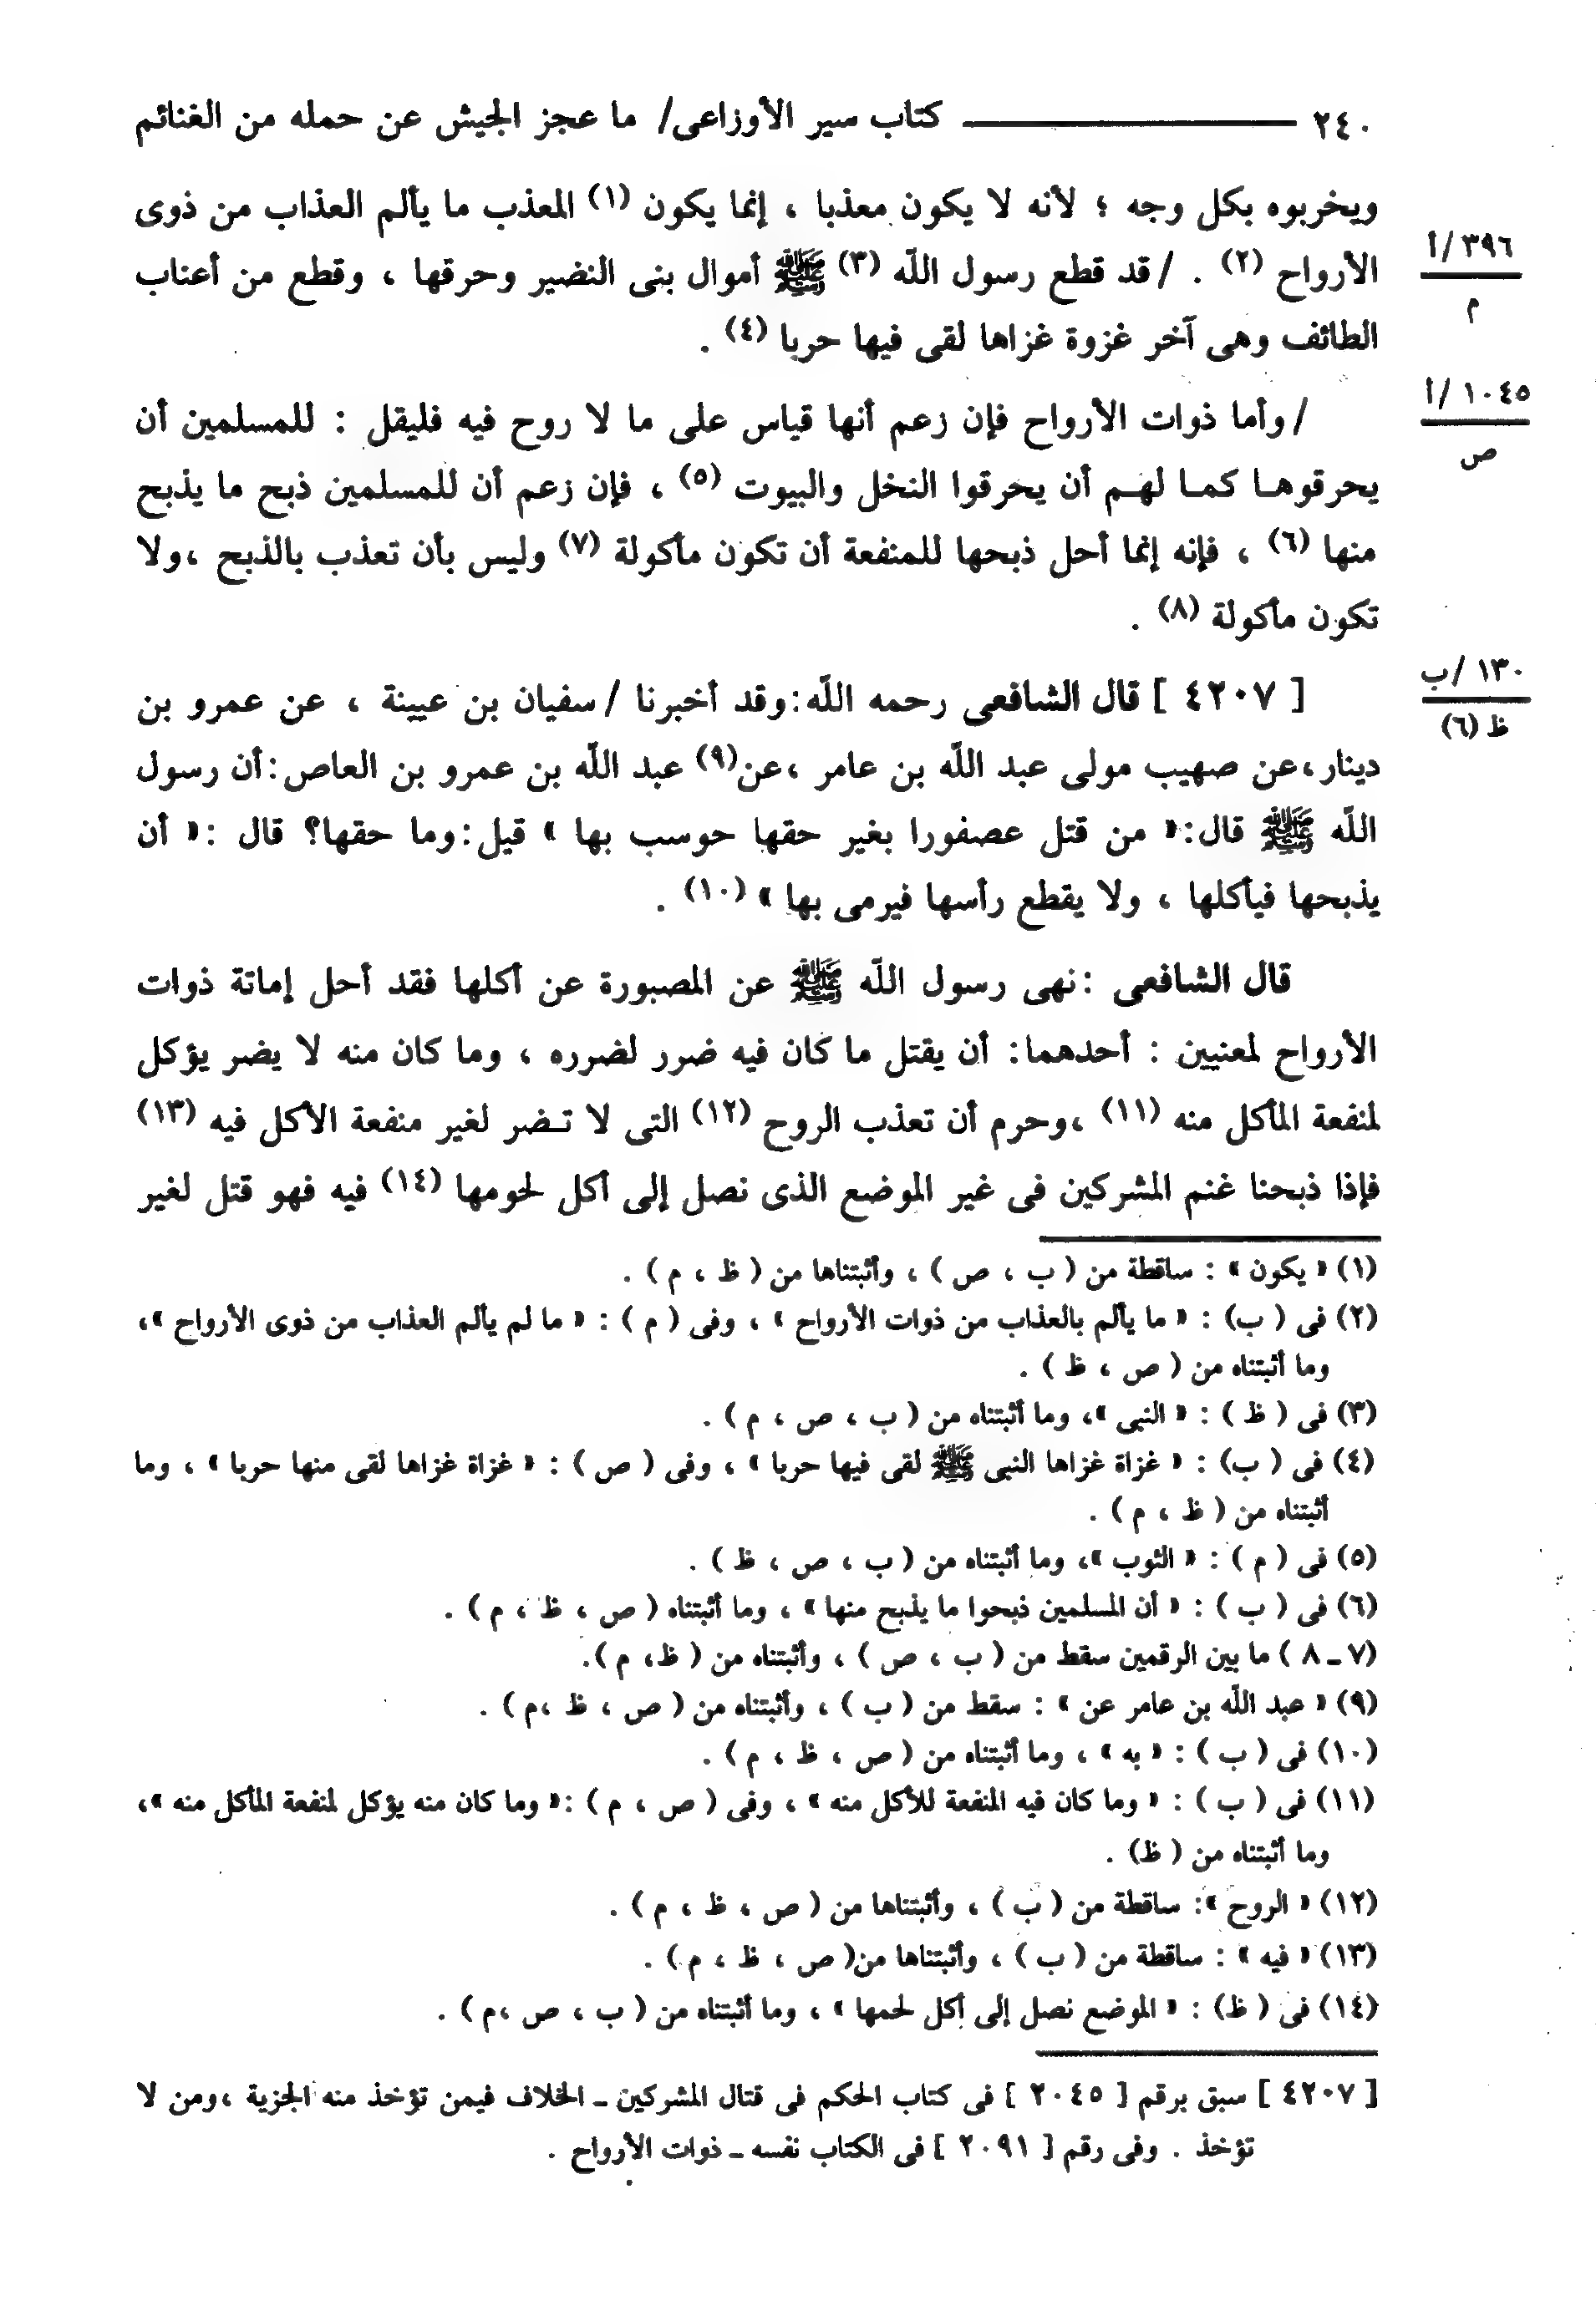 ٢٤٠ ــــــــــــ كتاب سير الأوزاعى/ ما عجز الجيش عن حمله من الغنائم
ويخربوه بكل وجه ؛ لأنه لا يكون معذبا ، إنما يكون (١) المعذب ما يألم العذاب من ذوى
٣٩٦ /أ
م
الأرواح (٢) . /قد قطع رسول اللّه (٣) ﷺ أموال بنى النضير وحرقها ، وقطع من أعناب
الطائف وهى آخر غزوة غزاها لقى فيها حربا (٤) .
١٠٤٥ /أ
ص
/وأما ذوات الأرواح فإن زعم أنها قياس على ما لا روح فيه فليقل : للمسلمين أن
يحرقوهـا كمـا لهـم أن يحرقوا النخل والبيوت (٥) ، فإن زعم أن للمسلمين ذبح ما يذبح
منها (٦) ، فإنه إنما أحل ذبحها للمنفعة أن تكون مأكولة (٧) وليس بأن تعذب بالذبح ،ولا
تكون مأكولة (٨) .
١٣٠ /ب
ظ (٦)
[ ٤٢٠٧ ] قال الشافعى رحمه اللّه:وقد أخبرنا /سفيان بن عيينة ، عن عمرو بن
دينار،عن صهيب مولى عبد اللّه بن عامر ،عن(٩) عبد اللّه بن عمرو بن العاص:أن رسول
اللّه ﷺ قال:« من قتل عصفورا بغير حقها حوسب بها » قيل:وما حقها؟ قال :« أن
يذبحها فيأكلها ، ولا يقطع رأسها فيرمى بها » (١٠) .
قال الشافعى :نهى رسول اللّه ﷺ عن المصبورة عن أكلها فقد أحل إماتة ذوات
الأرواح لمعنيين : أحدهما: أن يقتل ما كان فيه ضرر لضرره ، وما كان منه لا يضر يؤكل
لمنفعة المأكل منه (١١) ،وحرم أن تعذب الروح (١٢) التى لا تـضر لغير منفعة الأكل فيه (١٣)
فإذا ذبحنا غنم المشركين فى غير الموضع الذى نصل إلى أكل لحومها (١٤) فيه فهو قتل لغير
(١) « يكون » : ساقطة من ( ب ، ص ) ، وأثبتناها من ( ظ ، م ) .
(٢) فى ( ب) : « ما يألم بالعذاب من ذوات الأرواح » ، وفى ( م ) : « ما لم يألم العذاب من ذوى الأرواح »،
وما أثبتناه من ( ص ، ظ ) .
(٣) فى ( ظ ) : « النبى »، وما أثبتناه من ( ب ، ص ، م ) .
(٤) فى ( ب) : « غزاة غزاها النبى ﷺ لقى فيها حربا » ، وفى ( ص ) : « غزاة غزاها لقى منها حربا » ، وما
أثبتناه من ( ظ ، م ) .
(٥) فى ( م ) : « الثوب »، وما أثبتناه من ( ب ، ص ، ظ ) .
(٦) فى ( ب ) : « أن المسلمين ذبحوا ما يذبح منها » ، وما أثبتناه ( ص ، ظ ، م ) .
(٧ ـ ٨ ) ما بين الرقمين سقط من ( ب ، ص ) ، وأثبتناه من ( ظ، م ).
(٩) « عبد اللّه بن عامر عن » : سقط من ( ب ) ، وأثبتناه من ( ص ، ظ ،م ) .
(١٠) فى ( ب ) : « به » ، وما أثبتناه من ( ص ، ظ ، م ) .
(١١) فى ( ب ) : « وما كان فيه المنفعة للأكل منه » ، وفى ( ص ، م ) :« وما كان منه يؤكل لمنفعة المأكل منه »،
وما أثبتناه من ( ظ) .
(١٢) « الروح »: ساقطة من ( ب ) ، وأثبتناها من ( ص ، ظ ، م ) .
(١٣) « فيه » : ساقطة من ( ب ) ، وأثبتناها من( ص ، ظ ، م ) .
(١٤) فى ( ظ) : « الموضع نصل إلى أكل لحمها » ، وما أثبتناه من ( ب ، ص ،م ) .
[ ٤٢٠٧ ] سبق برقم [ ٢٠٤٥ ] فى كتاب الحكم فى قتال المشركين ـ الخلاف فيمن تؤخذ منه الجزية ،ومن لا
تؤخذ . وفى رقم [ ٢٠٩١ ] فى الكتاب نفسه ـ ذوات الأرواح .